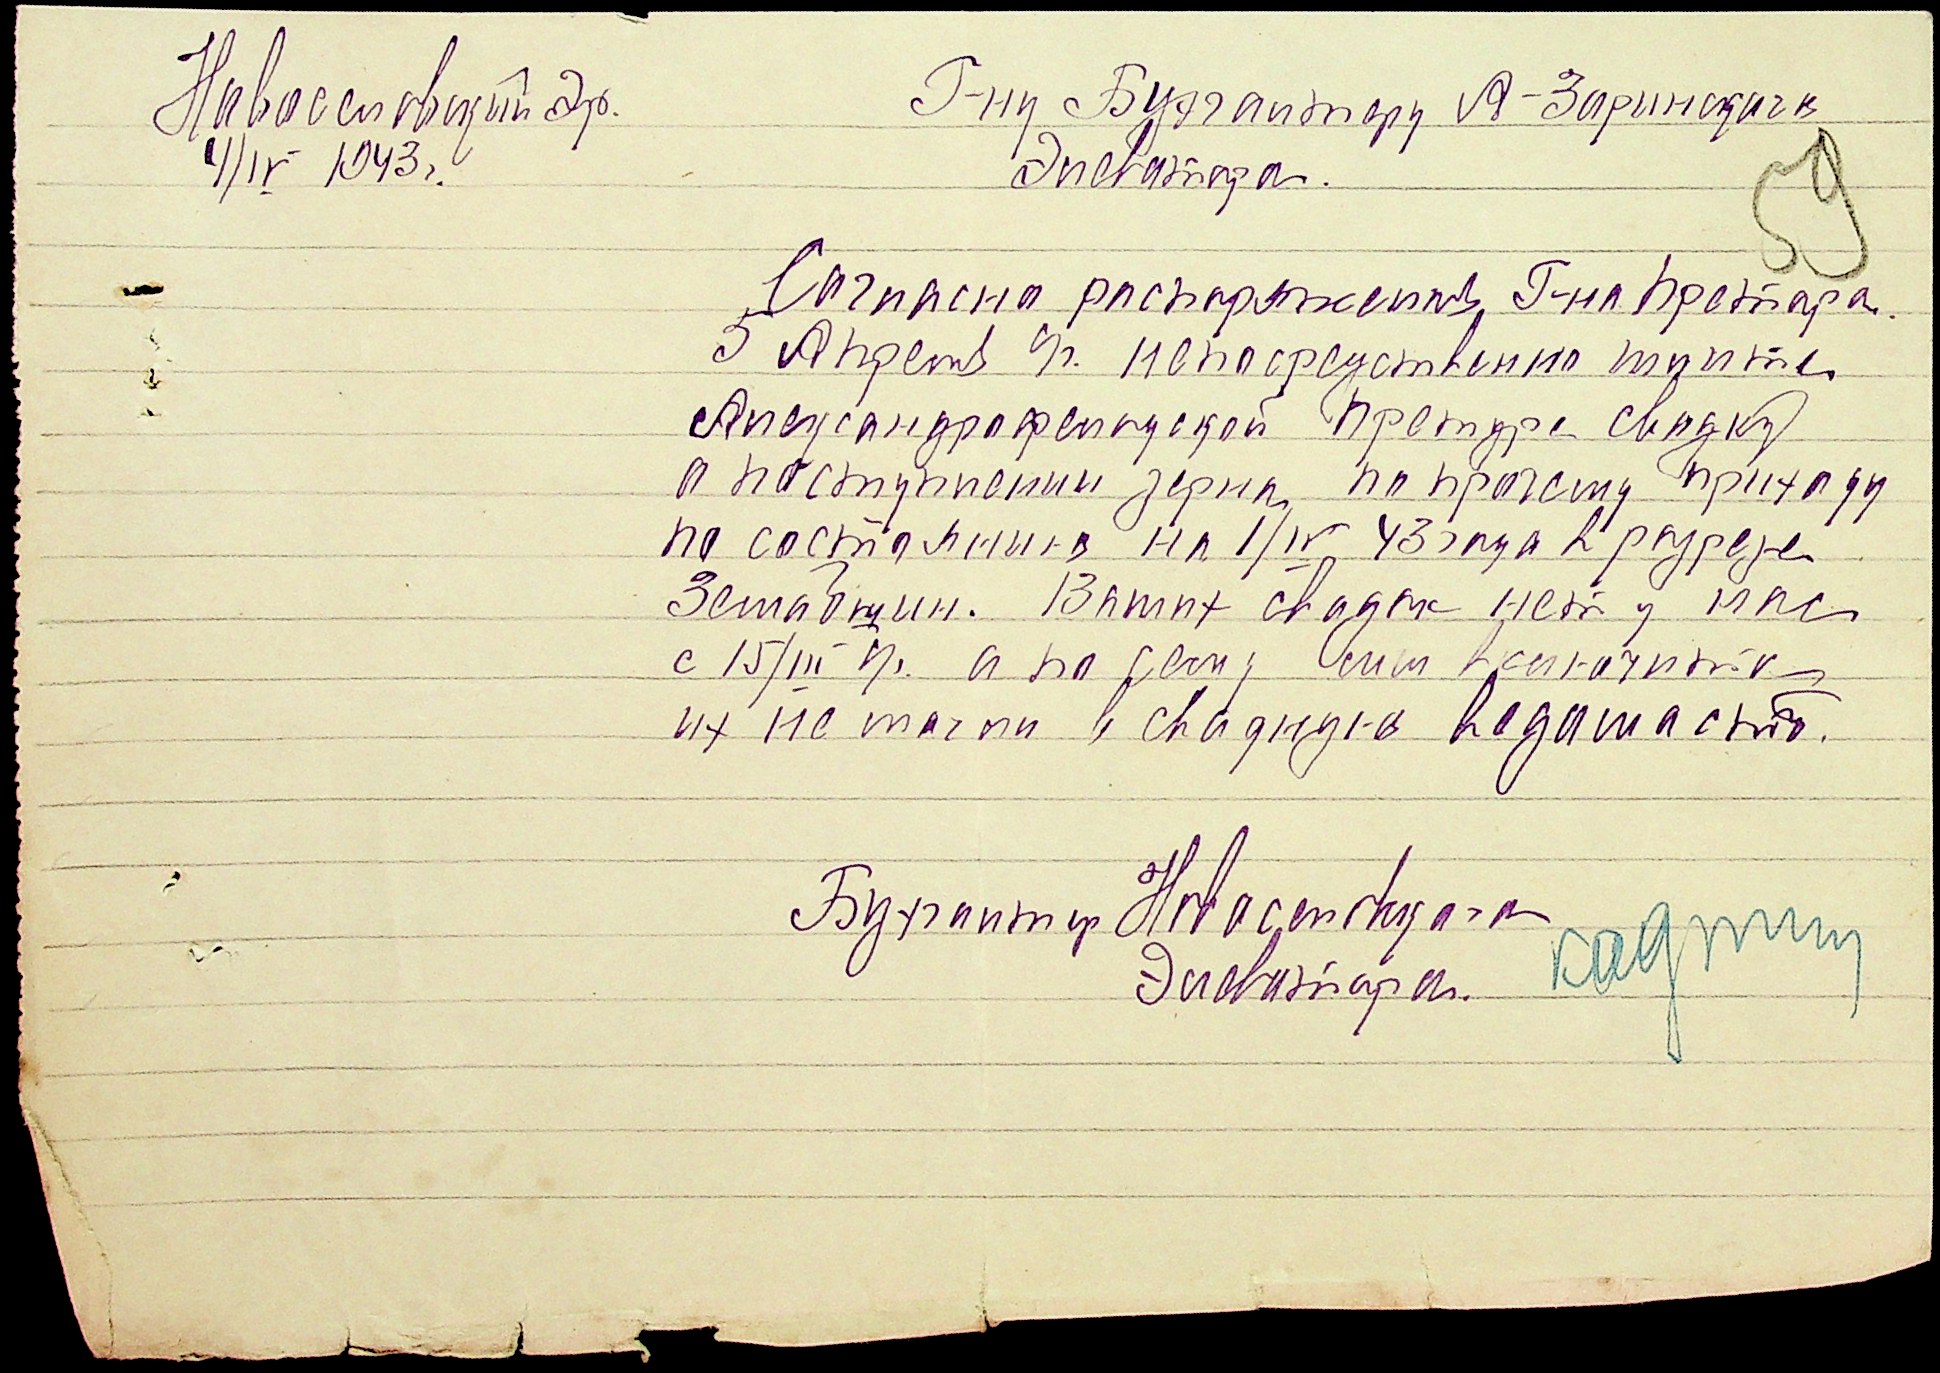 Новоселовский Эл.
4/IV 1943 г.
Г-ну Бухгалтеру А-Заринского
Элеватора.
59
Согласно распоряжения Г-на Претора
5 Апреля с/г. непосредственно шлите
Александрофельдской Претуре сводку
о поступлении зерна по прочему приходу
по состоянию на 1/IV 43 года в разрезе
Земобщин. Ваших сводок нет у нас
с 15/III с/г. а по сему мы включить
их не могли в сводную ведомость.
Бухгалтер Новоселовского
Элеватора.